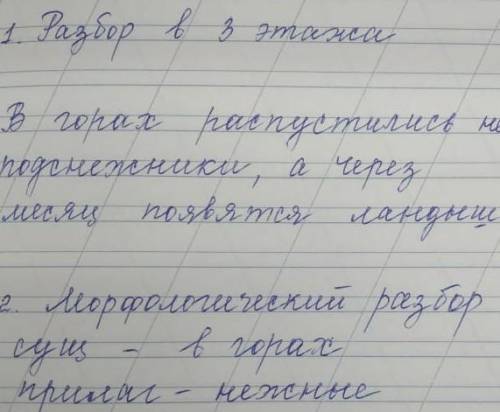 1. Разбор в 3 этажа
В горах распустились
подснежники, а через
месяц появятся ландыш
2. Морфологический разбор
сущ - в горах
прилаг - нежные